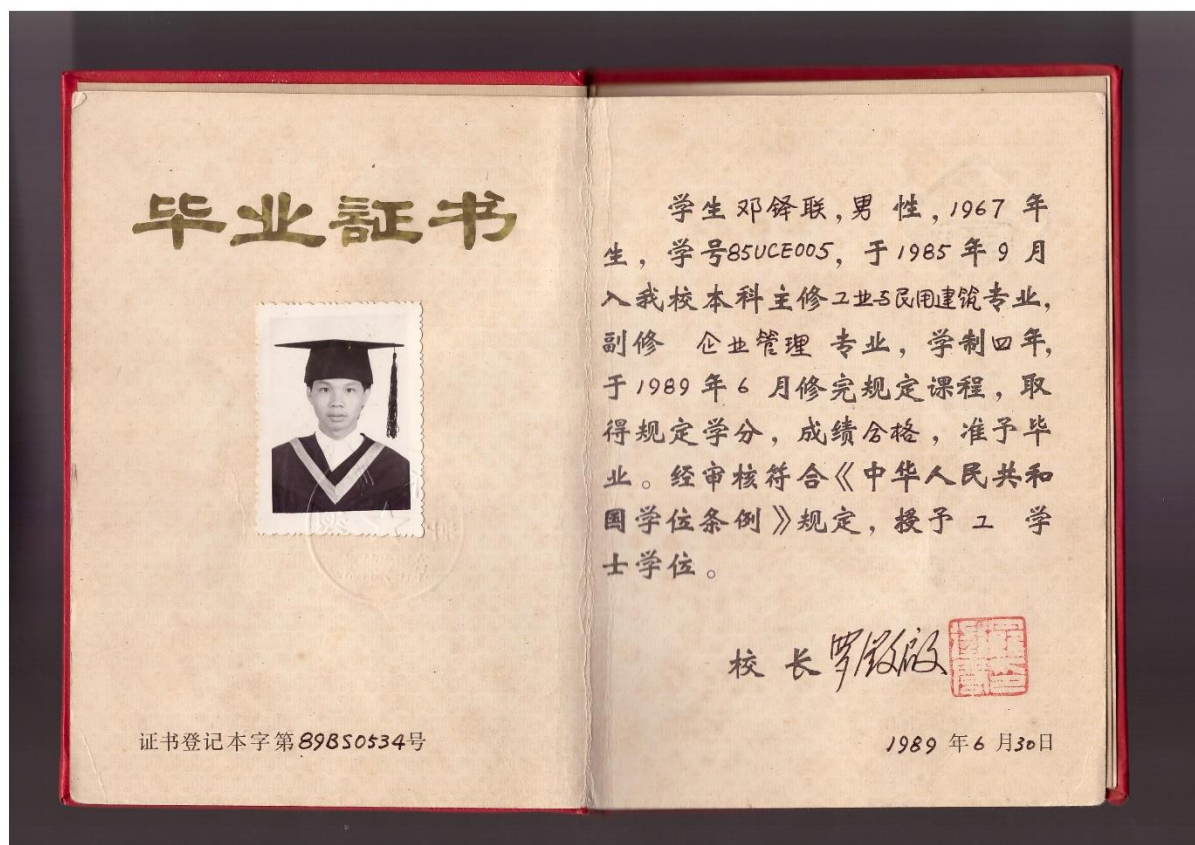 毕业証书
证书登记本字第89BS0534号
学生邓铎联,男 性,1967 年
生,学号85UCE005,于1985年9月
入我校本科主修工业与民用建筑专业,
副修 企业管理 专业,学制四年,
于1989年6月修完规定课程,取
得规定学分,成绩合格,准予毕
业。经审核符合《中华人民共和
国学位条例》规定,授予 工 学
士学位。
校 长
1989 年6 月30日